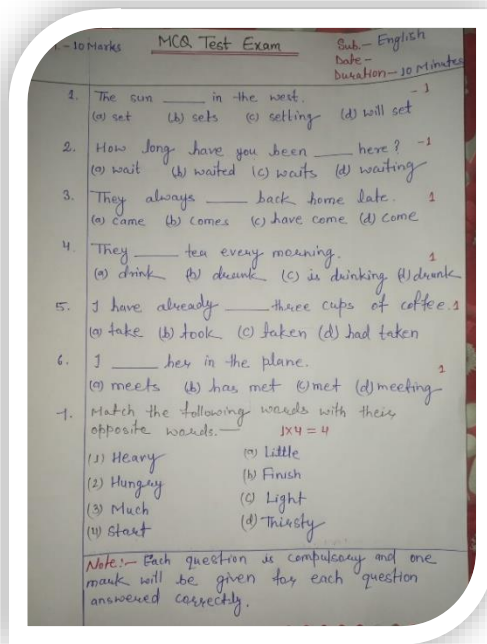 - 10 Marks MCQ Test Exam Sub.- English
Date-
Duration- 10 Minutes
1. The sun ____ in the west. - 1
(a) set (b) sets (c) setting (d) will set
2. How long have you been ____ here? -1
(a) wait (b) waited (c) waits (d) waiting
3. They always ____ back home late. 1
(a) came (b) comes (c) have come (d) come
4. They ____ tea every morning. 1
(a) drink (b) drunk (c) is drinking (d) drank
5. I have already ____ three cups of coffee. 1
(a) take (b) took (c) taken (d) had taken
6. I ____ her in the plane. 1
(a) meets (b) has met (c) met (d) meeting
7. Match the following words with their
opposite words.— 1x4 = 4
(1) Heavy (a) Little
(2) Hungry (b) Finish
(3) Much (c) Light
(4) Start (d) Thirsty
Note:- Each question is compulsory and one
mark will be given for each question
answered correctly.